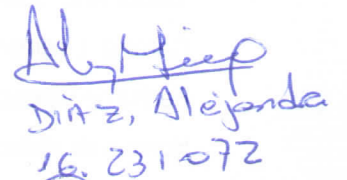 DIAZ, Alejandra
16.231072